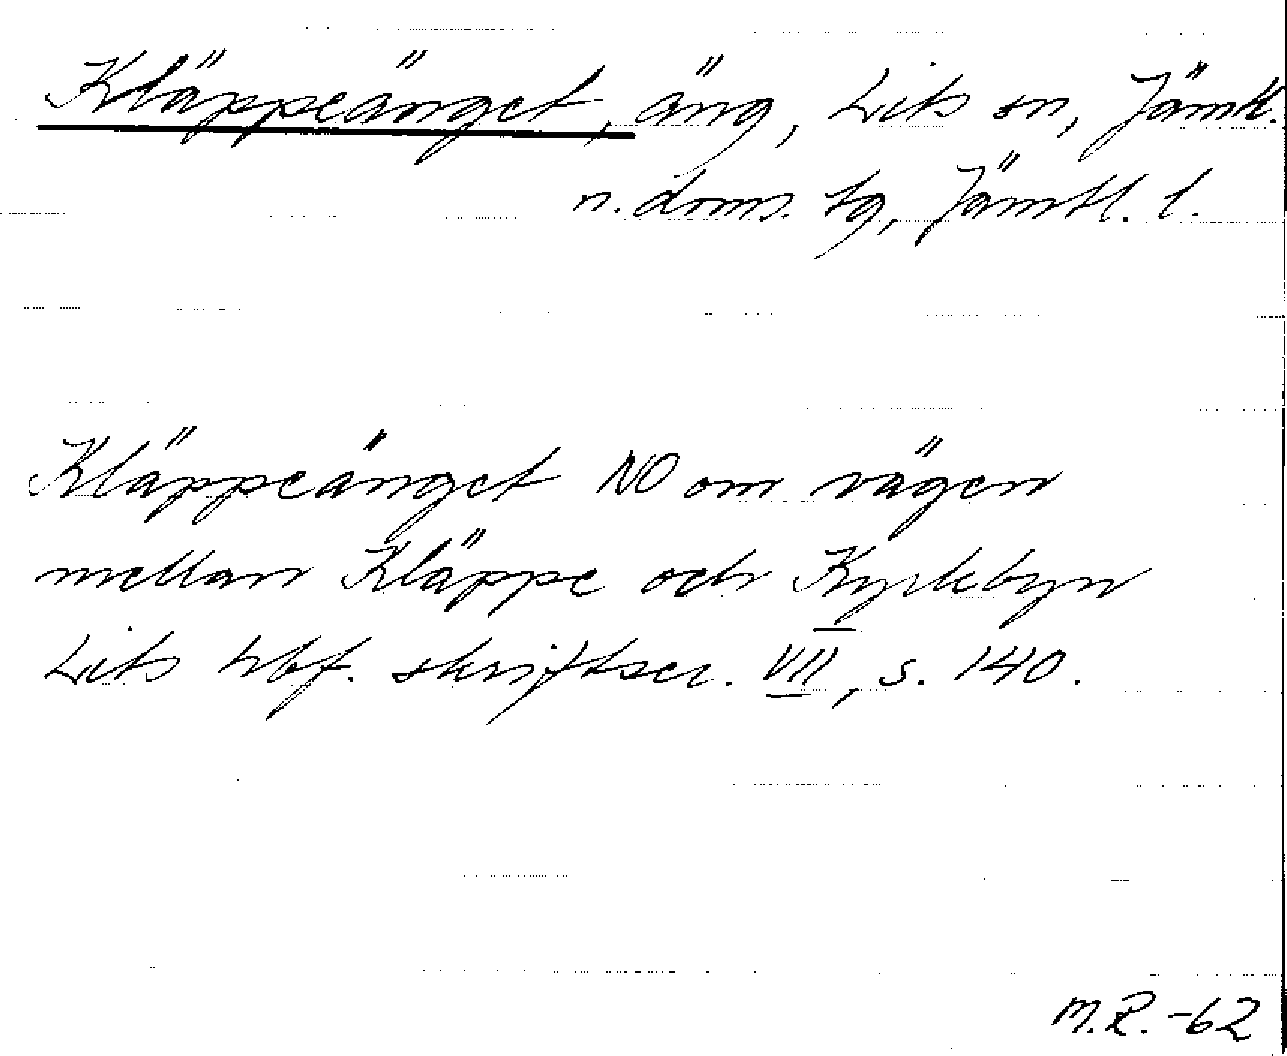 Kläppeänget, äng, Lits sn, Jämtl.
n. doms. tg, Jämtl. l.
Kläppeänget NO om vägen
mellan Kläppe och Kyrkbyn
Lits hbf. skriftser. VII, s. 140.
M.R. -62